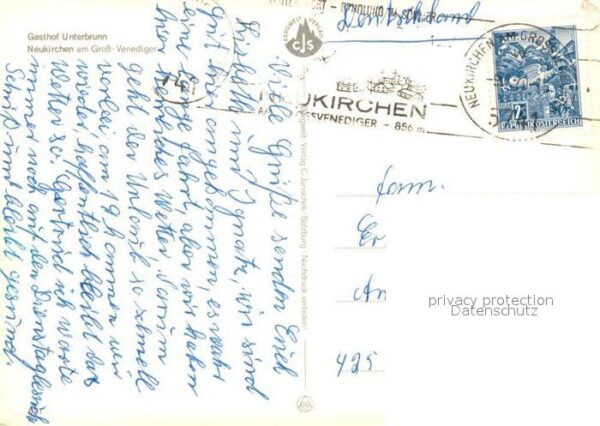 Gasthof Unterbrunn
Neukirchen am Groß-Venediger
Viele Grüße senden Euch
Liselotte und Ignatz, wir sind
gut angekommen, es war
eine lange Fahrt aber wir haben
hier herrliches Wetter. Darum
geht der Urlaub so schnell
vorbei, am 19. kommen wir
wieder, hoffentlich bleibt das
Wetter so. Gertrud ich warte
immer noch auf den
Schreibt und bleibt gesund.
VERLAG
cJs
Verlag C. Jurischek, Salzburg, Nachdruck verboten!
Deutschland
ERHOLUNG IM SOMMER
NEUKIRCHEN
GROSSVENEDIGER - 856 m
NEUKIRCHEN AM GROSSV
REPUBLIK ÖSTERREICH
Fam.
Er
An
425
privacy protection
Datenschutz